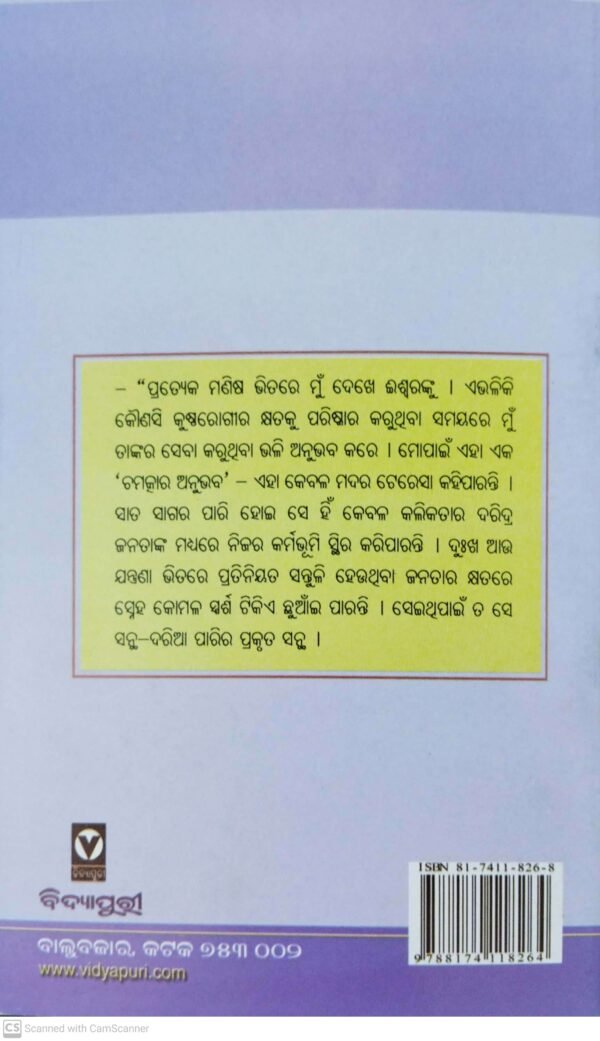 – “ପ୍ରତ୍ୟେକ ମଣିଷ ଭିତରେ ମୁଁ ଦେଖେ ଈଶ୍ୱରଙ୍କୁ । ଏଭଳିକି
କୌଣସି କୁଷ୍ଠରୋଗୀର କ୍ଷତକୁ ପରିଷ୍କାର କରୁଥିବା ସମୟରେ ମୁଁ
ତାଙ୍କର ସେବା କରୁଥିବା ଭଳି ଅନୁଭବ କରେ । ମୋପାଇଁ ଏହା ଏକ
‘ଚମତ୍କାର ଅନୁଭବ’ – ଏହା କେବଳ ମଦର ଟେରେସା କହିପାରନ୍ତି ।
ସାତ ସାଗର ପାରି ହୋଇ ସେ ହିଁ କେବଳ କଲିକତାର ଦରିଦ୍ର
ଜନତାଙ୍କ ମଧ୍ୟରେ ନିଜର କର୍ମଭୂମି ସ୍ଥିର କରିପାରନ୍ତି । ଦୁଃଖ ଆଉ
ଯନ୍ତ୍ରଣା ଭିତରେ ପ୍ରତିନିୟତ ସନ୍ତୁଳି ହେଉଥିବା ଜନତାର କ୍ଷତରେ
ସ୍ନେହ କୋମଳ ସ୍ପର୍ଶ ଟିକିଏ ଛୁଆଁଇ ପାରନ୍ତି । ସେଇଥିପାଇଁ ତ ସେ
ସନ୍ଥ–ଦରିଆ ପାରିର ପ୍ରକୃତ ସନ୍ଥ ।
ବିଦ୍ୟାପୁରୀ
ବିଦ୍ୟାପୁରୀ
ବାଲୁବଜାର, କଟକ ୭୫୩ ୦୦୨
www.vidyapuri.com
ISBN 81-7411-826-8
9788174118264
CS Scanned with CamScanner